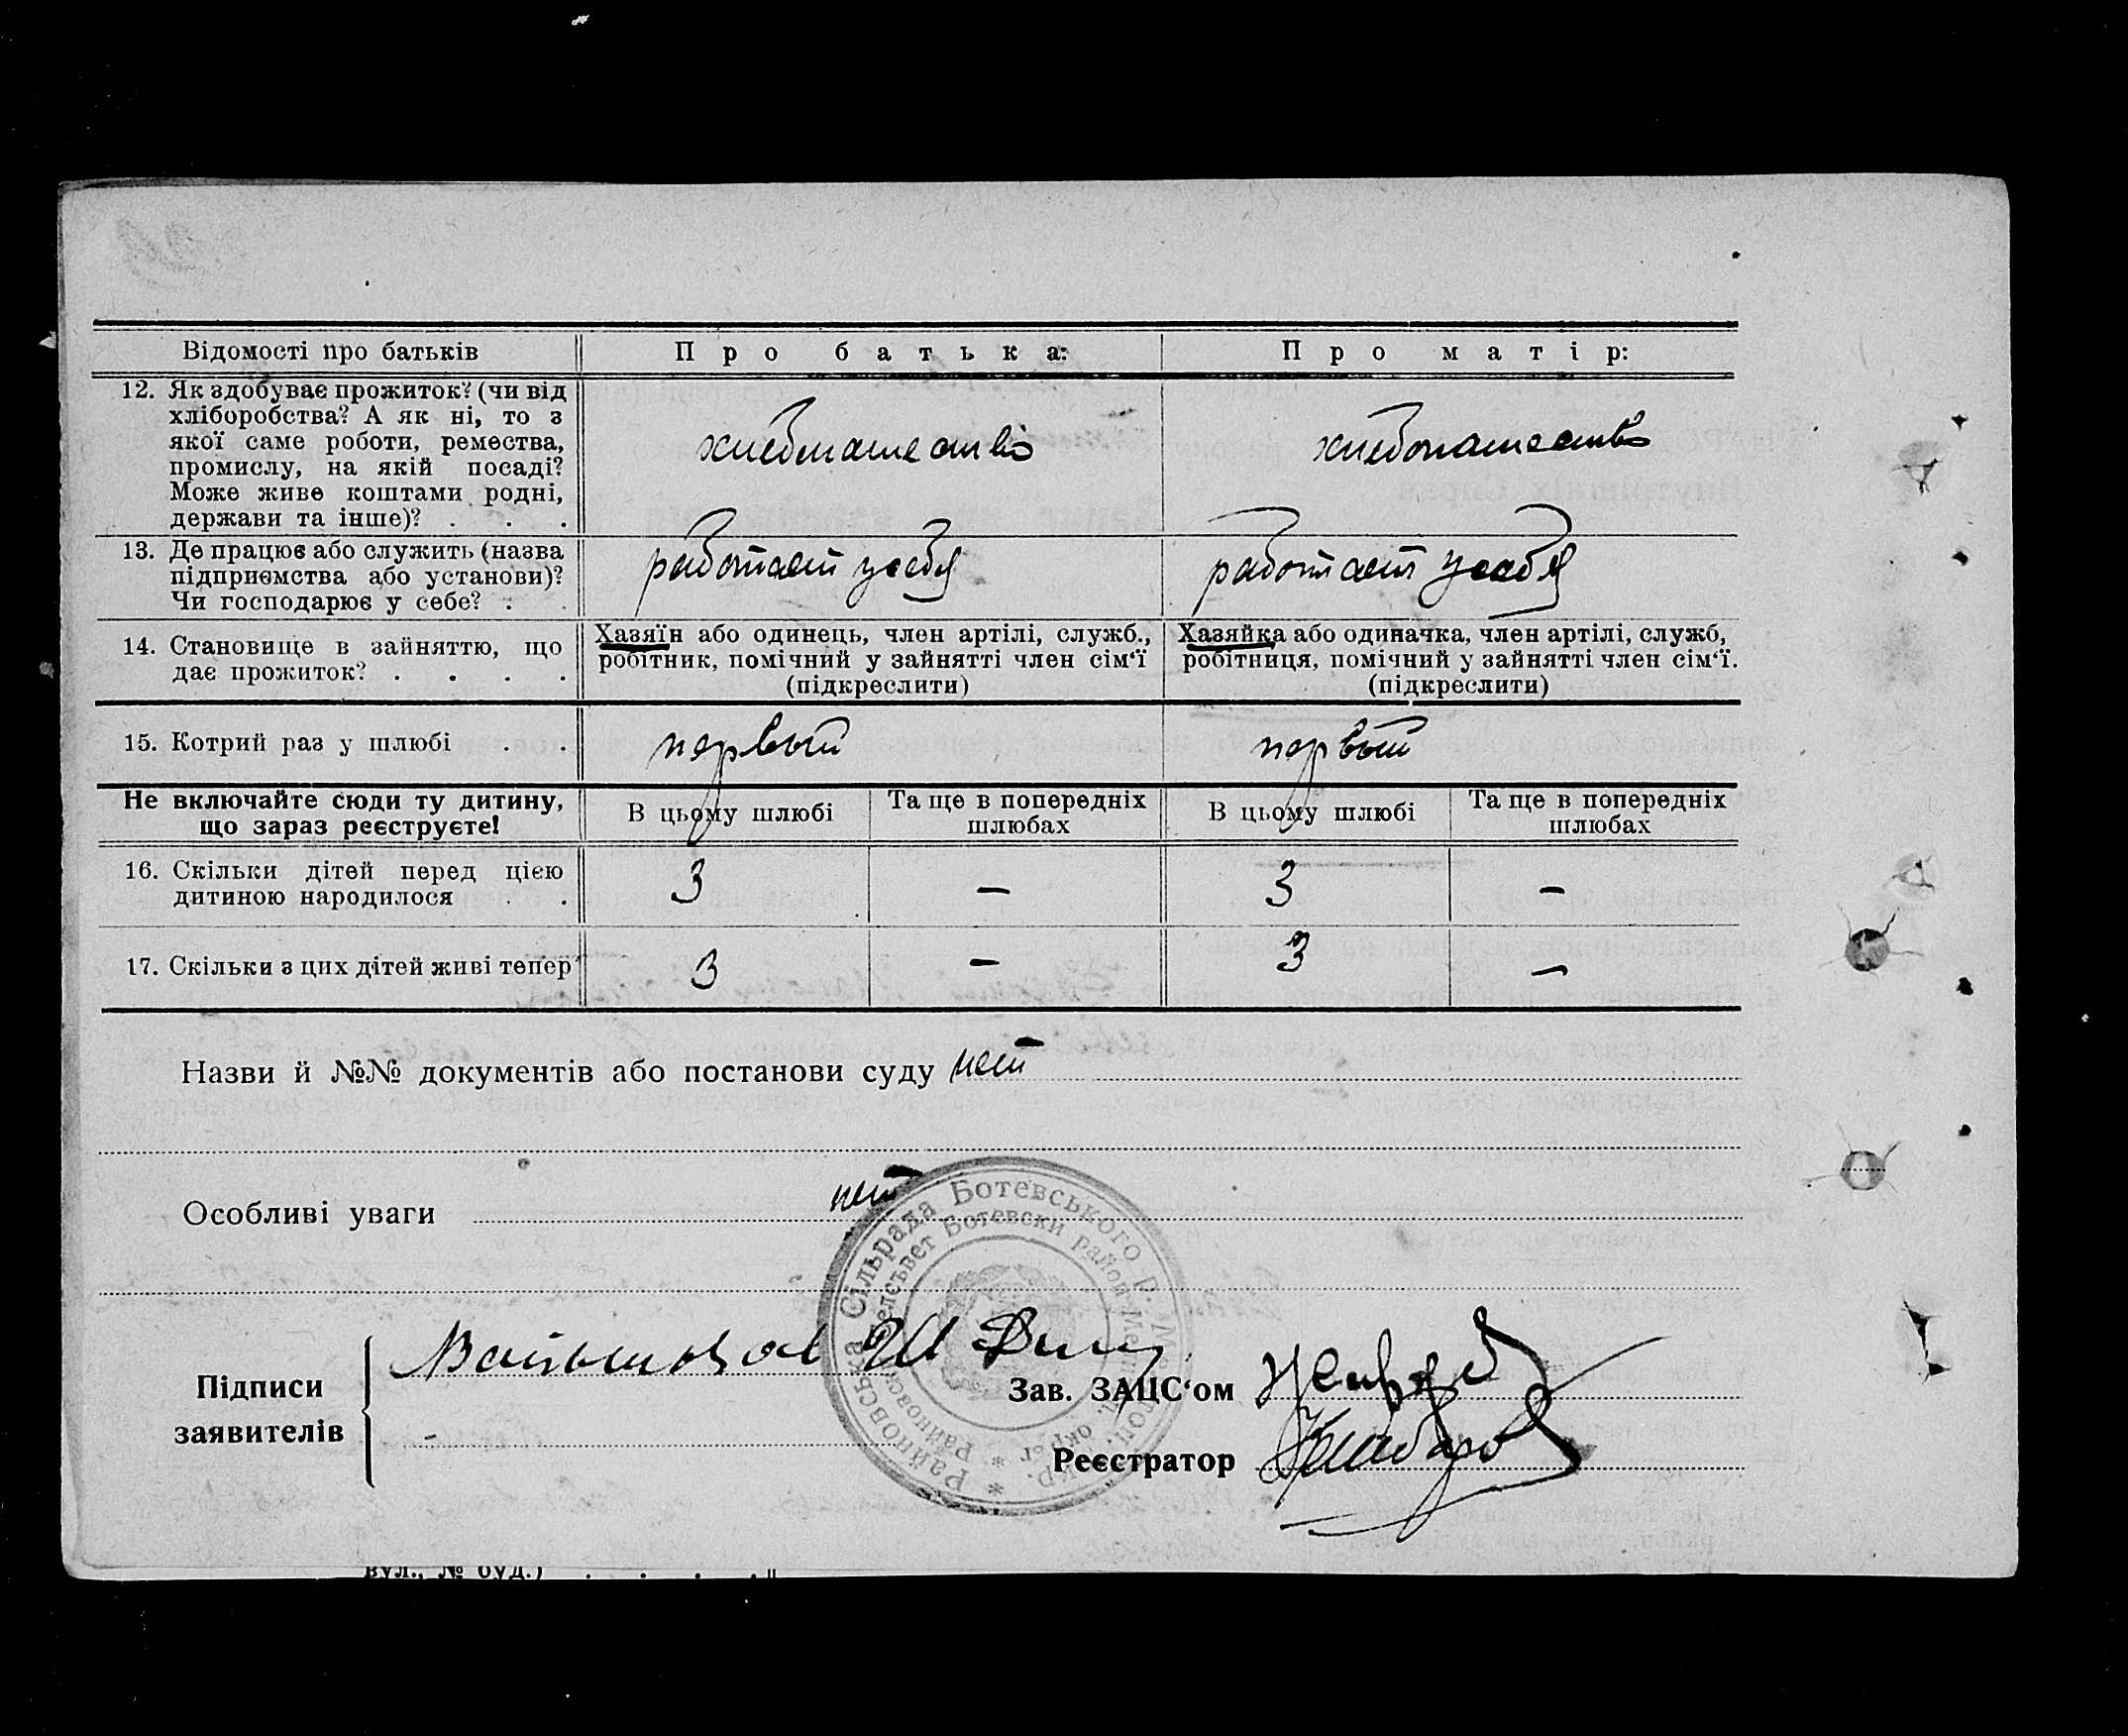 Відомості про батьків
Про батька:
Про матір:
12. Як здобуває прожиток? (чи від
хліборобства? А як ні, то з
якої саме роботи, ремества,
промислу, на якій посаді?
Може живе коштами родні,
держави та інше)? . . .
хлебопашество
хлебопашество
13. Де працює або служить (назва
підприємства або установи)?
Чи господарює у себе? .
работает у себя
работает у себя
14. Становище в зайняттю, що
дає прожиток? . . . .
Хазяїн або одинець, член артілі, служб.,
робітник, помічний у зайнятті член сім‘ї
(підкреслити)
Хазяйка або одиначка, член артілі, служб,
робітниця, помічний у зайнятті член сім‘ї.
(підкреслити)
15. Котрий раз у шлюбі . .
первый
первый
Не включайте сюди ту дитину,
що зараз реєструєте!
В цьому шлюбі
Та ще в попередніх
шлюбах
В цьому шлюбі
Та ще в попередніх
шлюбах
16. Скільки дітей перед цією
дитиною народилося . .
3 — 3 —
17. Скільки з цих дітей живі тепер
3 — 3 —
Назви й №№ документів або постанови суду нет
Особливі уваги нет
Райновська Сільрада Ботевського р. Мелітоп. окр.
Ботевски район
Підписи
заявителів
Зав. ЗАЦС‘ом
Реєстратор
вул., № буд.) . . . .